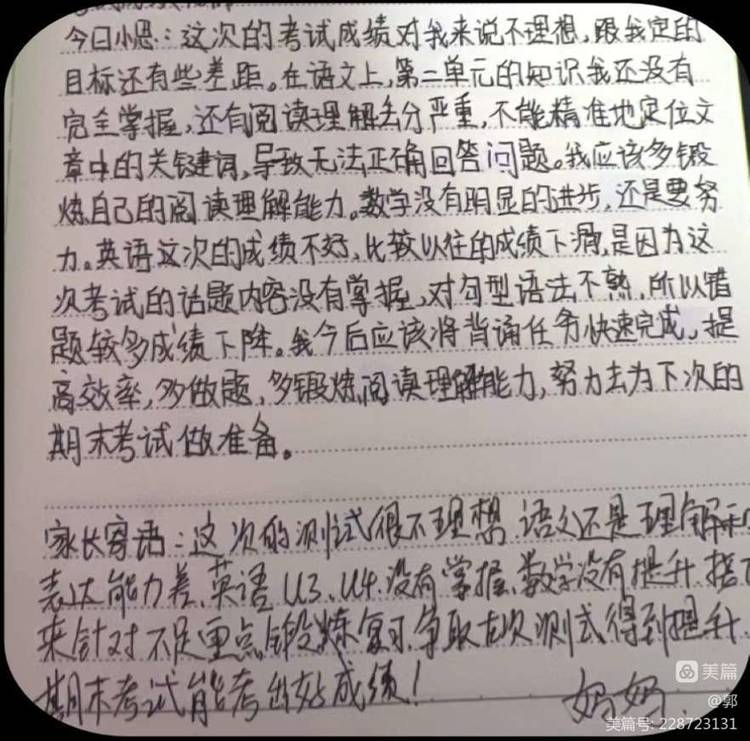 今日小思：这次的考试成绩对我来说不理想，跟我定的
目标还有些差距。在语文上，第二单元的知识我还没有
完全掌握，还有阅读理解丢分严重，不能精准地定位文
章中的关键词，导致无法正确回答问题。我应该多锻
炼自己的阅读理解能力。数学没有明显的进步，还是要努
力。英语这次的成绩不好，比较以往的成绩下滑，是因为这
次考试的话题内容没有掌握，对句型语法不熟，所以错
题较多成绩下降。我今后应该将背诵任务快速完成，提
高效率，多做题，多锻炼阅读理解能力，努力去为下次的
期末考试做准备。
家长寄语：这次的测试很不理想，语文还是理解和
表达能力差，英语U3、U4.没有掌握，数学没有提升.接下
来针对不足重点锻炼复习，争取在次测试得到提升.
期末考试能考出好成绩！
妈妈.
美篇
@郭
美篇号: 228723131